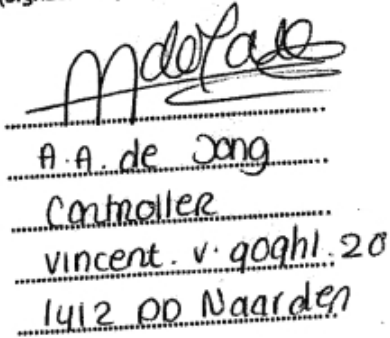 A.A. de Jong
Controller
vincent. v. goghl. 20
1412 DD Naarden